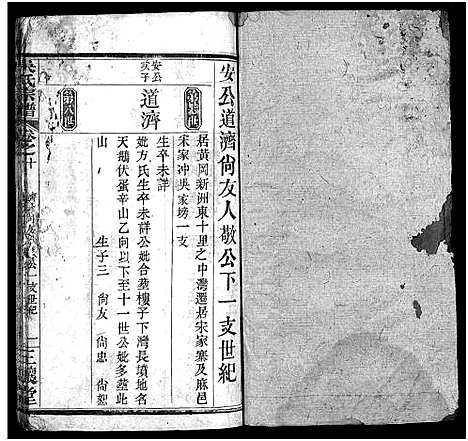 安公道濟尙友人敬公下一支世紀
第七世
居黃岡新洲東十里之中灣遷居宋家寨及麻邑
宋家冲吳家塝一支
安公
次子
道濟
第八世
生卒未詳
妣方氏生卒未詳公妣合塟樓子下灣長墳地名
天鵝伏蛋辛山乙向以下至十一世公妣多塟此
山 生子三 尙友 尙忠 尙恕
吳氏宗譜
卷之十
一支世紀
三讓堂